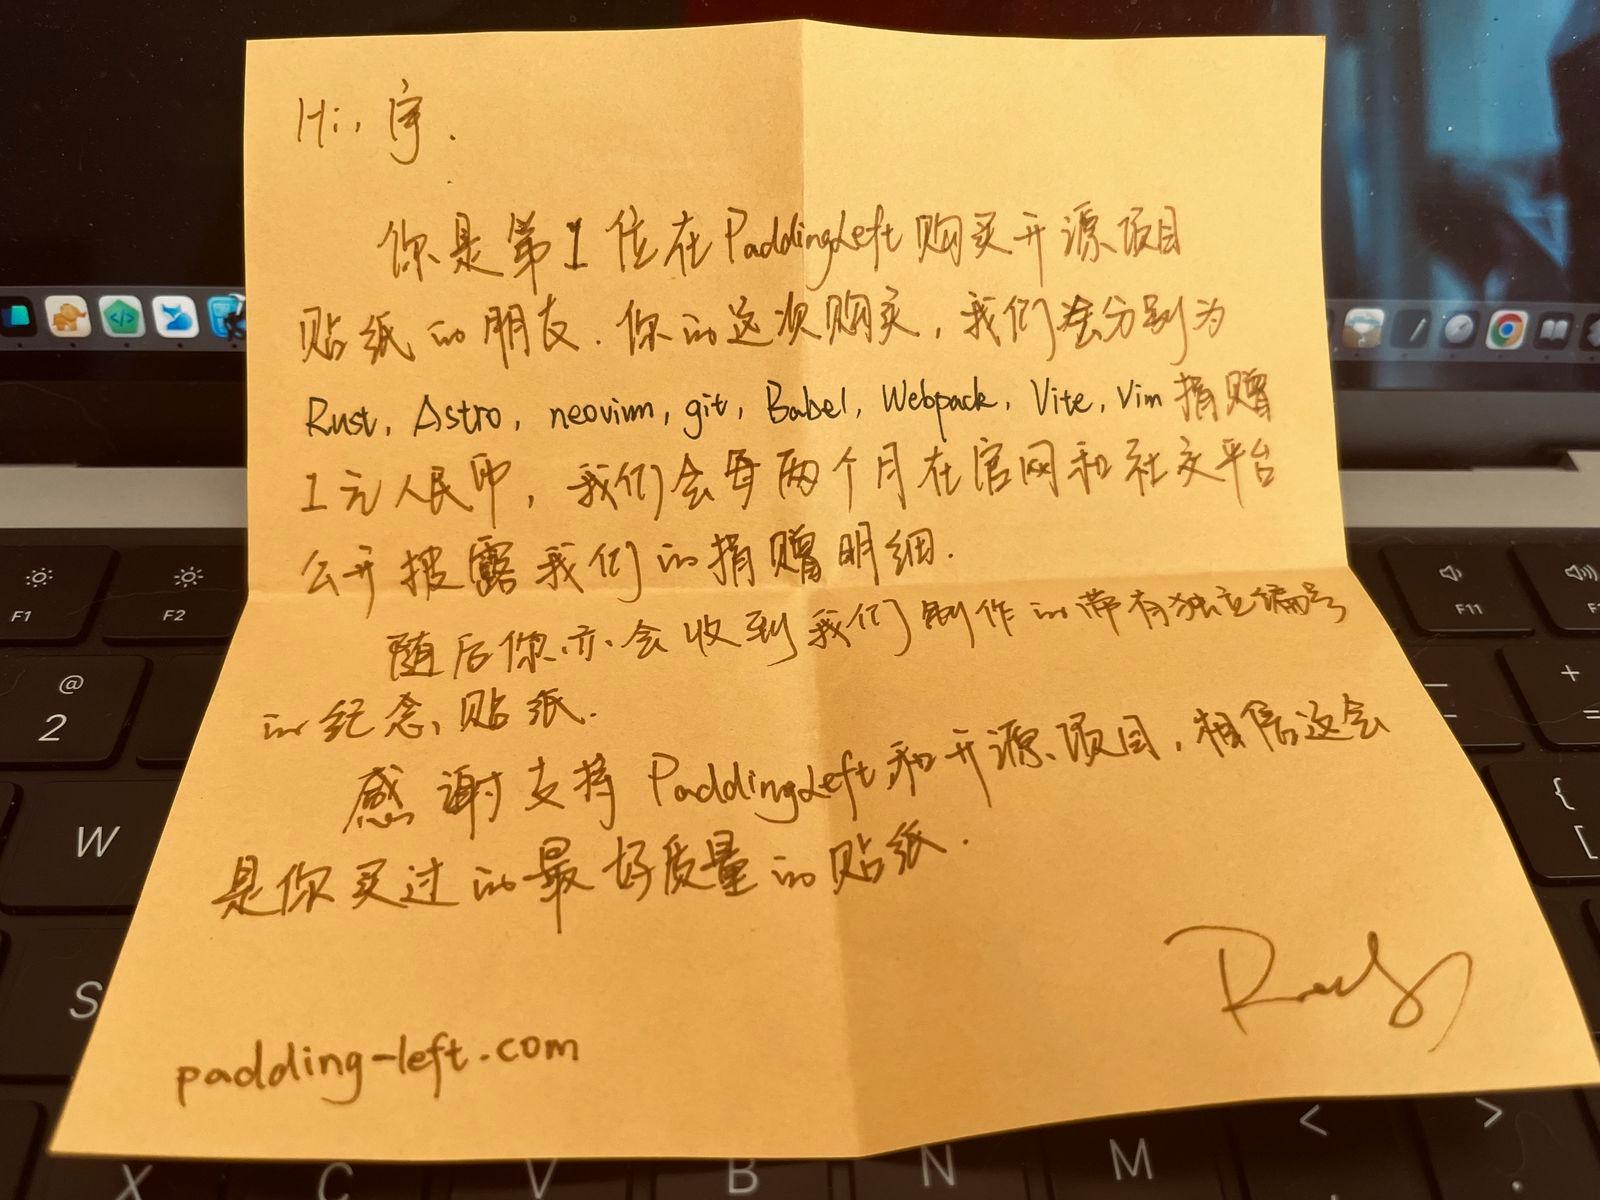 Hi, 宇.
你是第1位在PaddingLeft购买开源项目
贴纸的朋友.你的这次购买,我们会分别为
Rust, Astro, neovim, git, Babel, Webpack, Vite, Vim 捐赠
1元人民币,我们会每两个月在官网和社交平台
公开披露我们的捐赠明细.
随后你亦会收到我们制作的带有独立编号
的纪念贴纸.
感谢支持PaddingLeft和开源项目,相信这会
是你买过的最好质量的贴纸.
padding-left.com
F1
F2
F11
@
2
W
S
X
C
V
B
N
M
<
>
+
=
{
[